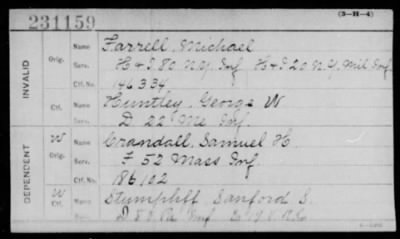 231159 (3-H-4)
INVALID
Orig. Name Farrell, Michael
Serv. H & I 80 N.Y. Inf H & I 20 N.Y. Mil Inf
Ctf. No. 146334
Ctf. Name Huntley, George W
D 22 Me Inf.
DEPENDENT
W Orig. Name Crandall, Samuel H.
Serv. F 52 Mass Inf.
Ctf. No. 186102
W Ctf. Name Stumpliff, Sanford S.
Serv. D 8